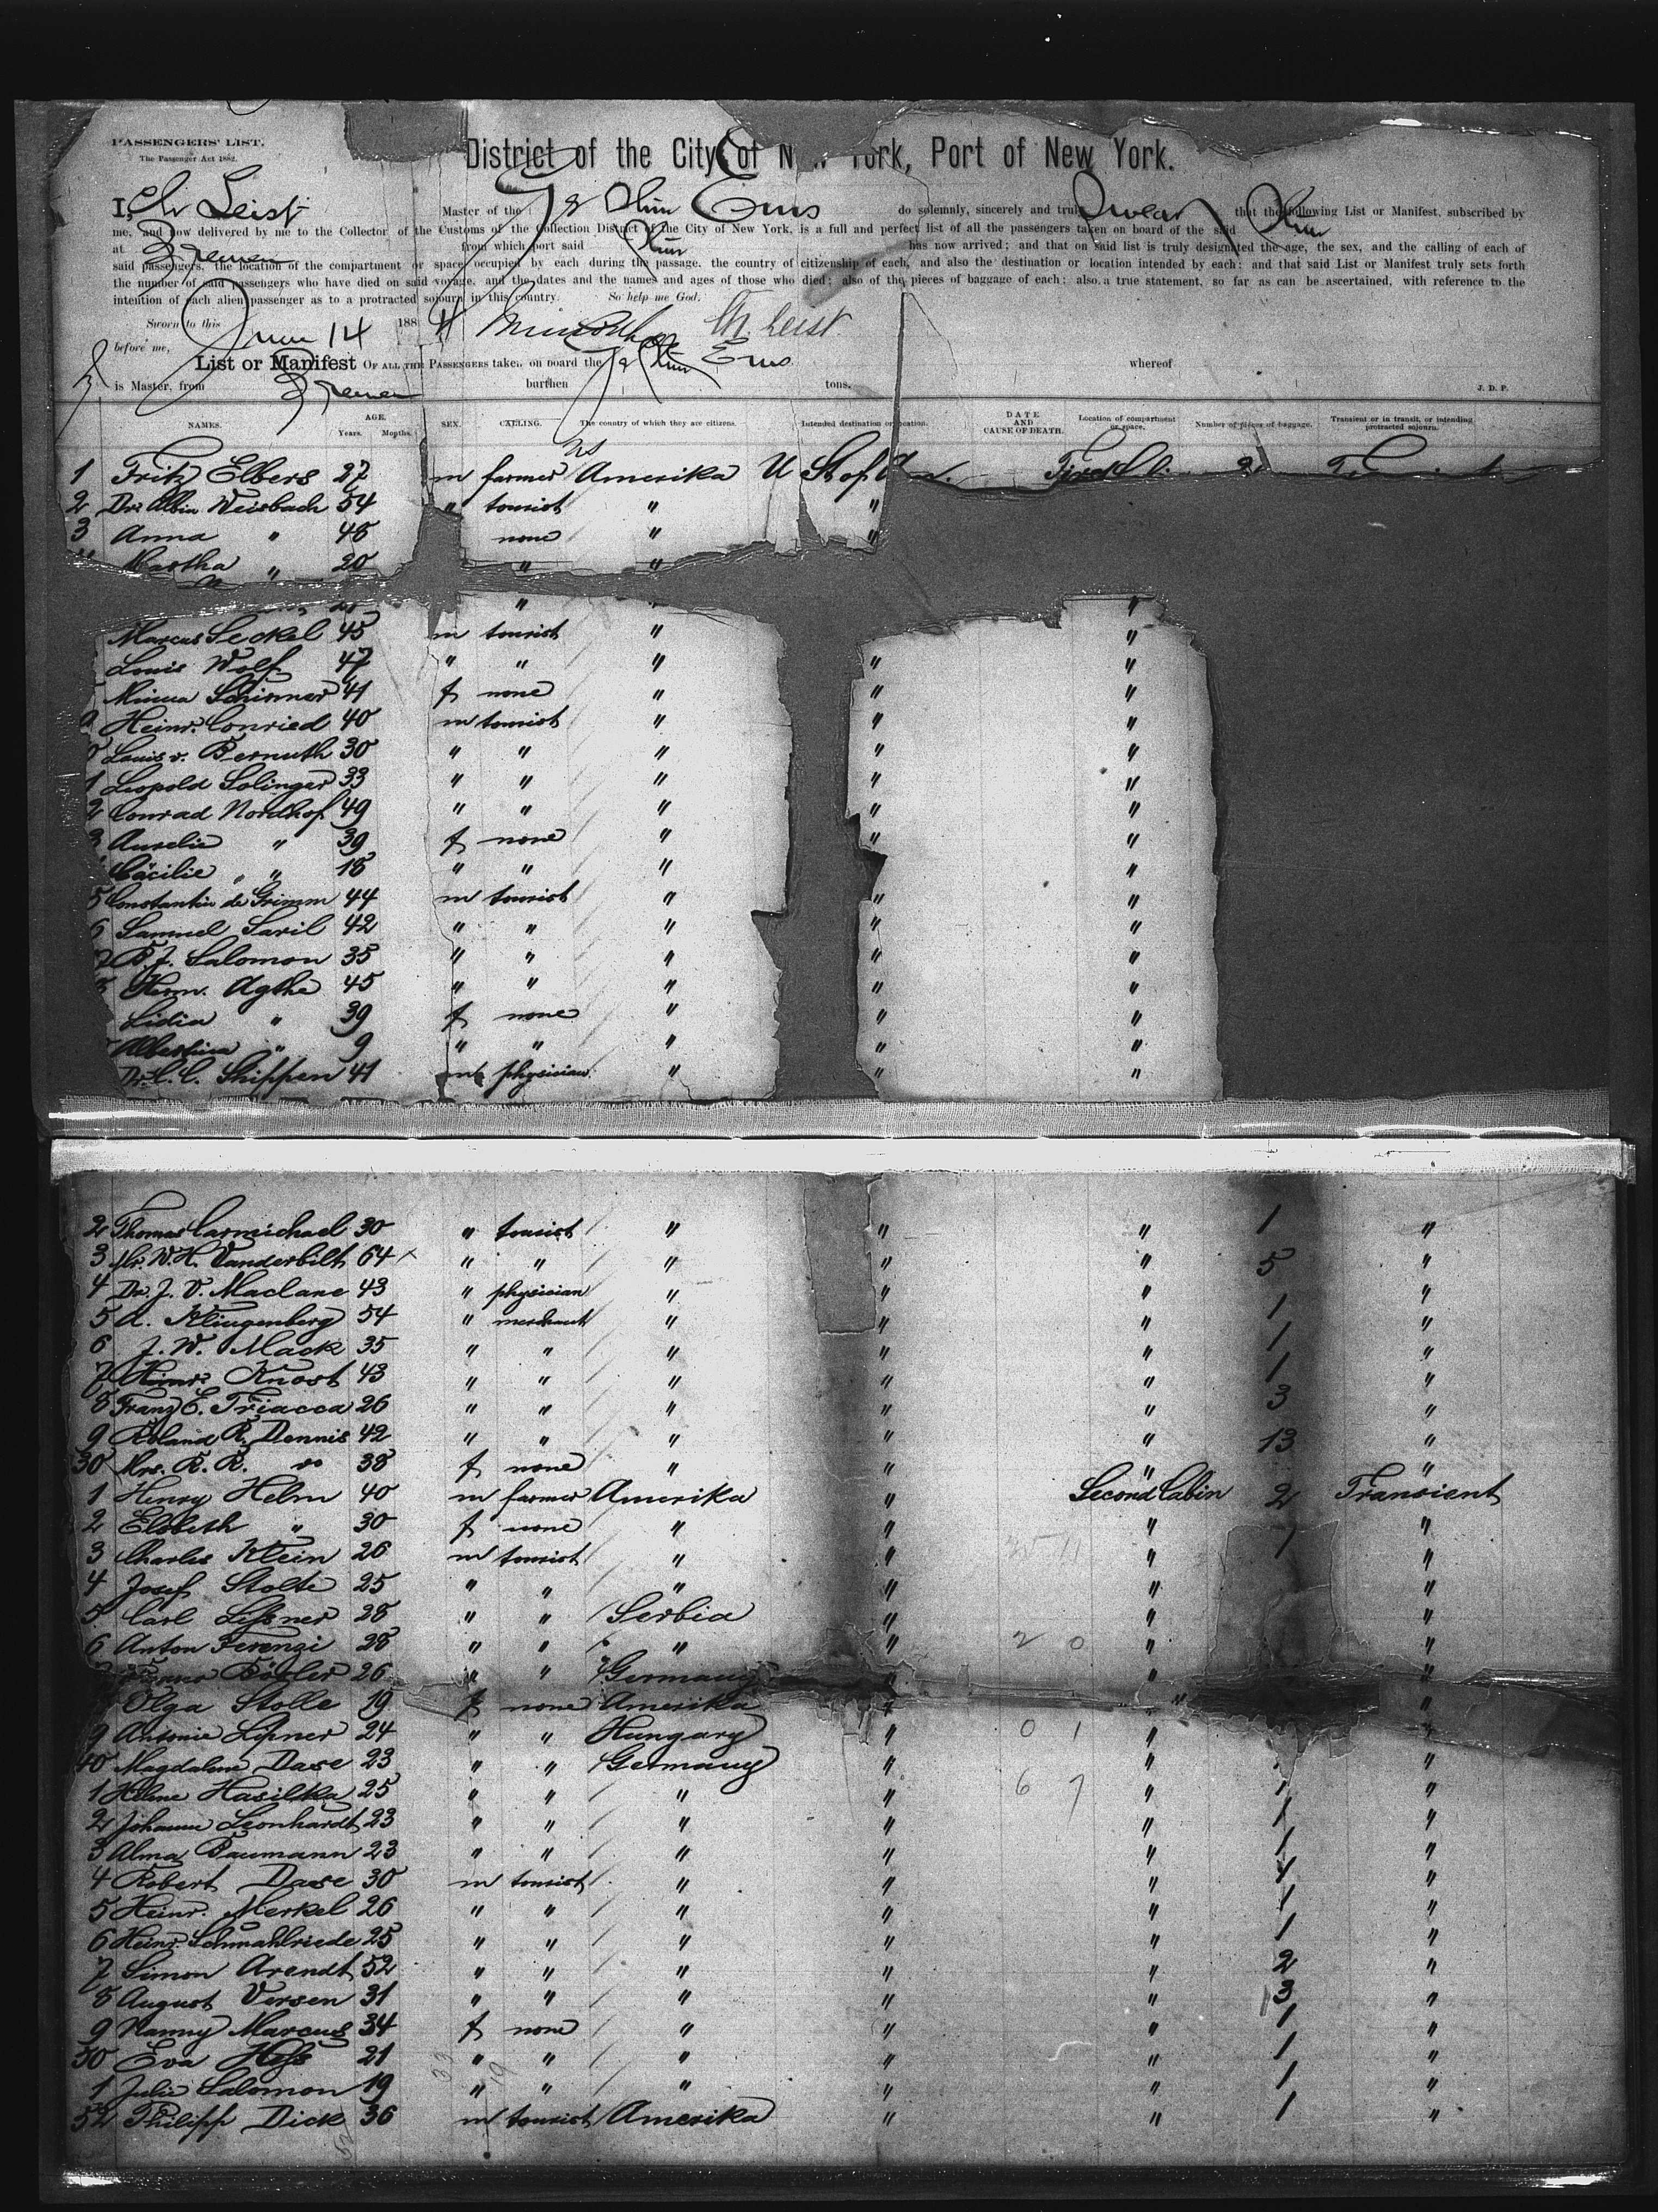 PASSENGERS' LIST.
The Passenger Act 1882.
District of the City of New York, Port of New York.
I, Ch Leist Master of the Ems do solemnly, sincerely and truly swear that the following List or Manifest, subscribed by
me, and now delivered by me to the Collector of the Customs of the Collection District of the City of New York, is a full and perfect list of all the passengers taken on board of the said
at Bremen from which port said has now arrived; and that on said list is truly designated the age, the sex, and the calling of each of
said passengers, the location of the compartment or space occupied by each during the passage, the country of citizenship of each, and also the destination or location intended by each; and that said List or Manifest truly sets forth
the number of said passengers who have died on said voyage, and the dates and the names and ages of those who died; also of the pieces of baggage of each; also a true statement, so far as can be ascertained, with reference to the
intention of each alien passenger as to a protracted sojourn in this country. So help me God.
Sworn to this June 14 1884 Ch. Leist
before me,
List or Manifest OF ALL THE PASSENGERS taken on board the Ems whereof
is Master, from Bremen burthen tons. J. D. P.
NAMES. AGE. Years. Months. SEX. CALLING. The country of which they are citizens. Intended destination or location. DATE AND CAUSE OF DEATH. Location of compartment or space. Number of pieces of baggage. Transient or in transit, or intending protracted sojourn.
1 Fritz Elbers 27 m farmer Amerika U St of
2 Dr. Albin Weisbach 54 " tourist " "
3 Anna " 48 none " "
Martha " 20 " "
" "
Marcus Seckel 45 m tourist " "
Louis Wolf 47 " " " " "
Minna Schirmer 41 f none " " "
9 Heinr. Conried 40 m tourist " " "
0 Louis v. Bernuth 30 " " " " "
1 Leopold Solinger 33 " " " " "
2 Conrad Nordhof 49 " " " " "
3 Aurelia " 39 f none " " "
Cäcilie " " 18 " " " "
5 Constantin de Grimm 44 m tourist " " "
6 Samuel Saril 42 " " " " "
7 B. J. Salomon 35 " " " " "
Herm. Agthe 45 " " " " "
Lidia " 39 f none " " "
Albertina " 9 " " " " "
Dr. C. C. Shippen 41 m physician " " "
2 Thomas Carmichael 30 " tourist " " " 1 "
3 Mr. W. H. Vanderbilt 64 x " " " " " 5 "
4 Dr. J. V. Maclane 43 " physician " " " "
5 A. Klingenberg 54 " merchant " " " 1 "
6 J. W. Mack 35 " " " " " 1 "
7 Heinr. Knost 43 " " " " " 1 "
8 Franz E. Triacca 26 " " " " " 3 "
9 Roland R. Dennis 42 " " " " " 13 "
30 Mrs. R. R. do 38 f none " " " "
1 Henry Helm 40 m farmer Amerika " Second Cabin 2 Transient
2 Elsbeth " 30 f none " " " "
3 Charles Klein 26 m tourist " " " 1 "
4 Josef Stolte 25 " " " " " "
5 Carl Lissner 28 " " Serbia " " "
6 Anton Ferenzi 28 " " " " 2 0 " "
Bösler 26 " " Germany " " "
Olga Stolle 19 f none Amerika " " "
9 Antonie Lipner 24 " " Hungary " 0 1 " "
40 Magdalena Dase 23 " " Germany " " "
1 Helene Hasilka 25 " " " " 6 7 " 1 "
2 Johanne Leonhardt 23 " " " " " 1 "
3 Alma Baumann 23 " " " " " 1 "
4 Robert Dase 30 m tourist " " " 1 "
5 Heinr. Merkel 26 " " " " " 1 "
6 Heinr. Schmahlriede 25 " " " " " 1 "
7 Simon Arendt 52 " " " " " 2 "
8 August Versen 31 " " " " " 3 "
9 Nanny Marcus 34 f none " " " 1 "
50 Eva Hess 21 " " " " " 1 "
1 Julie Salomon 19 " " " " " 1 "
52 Philipp Dick 36 m tourist Amerika " " 1 "